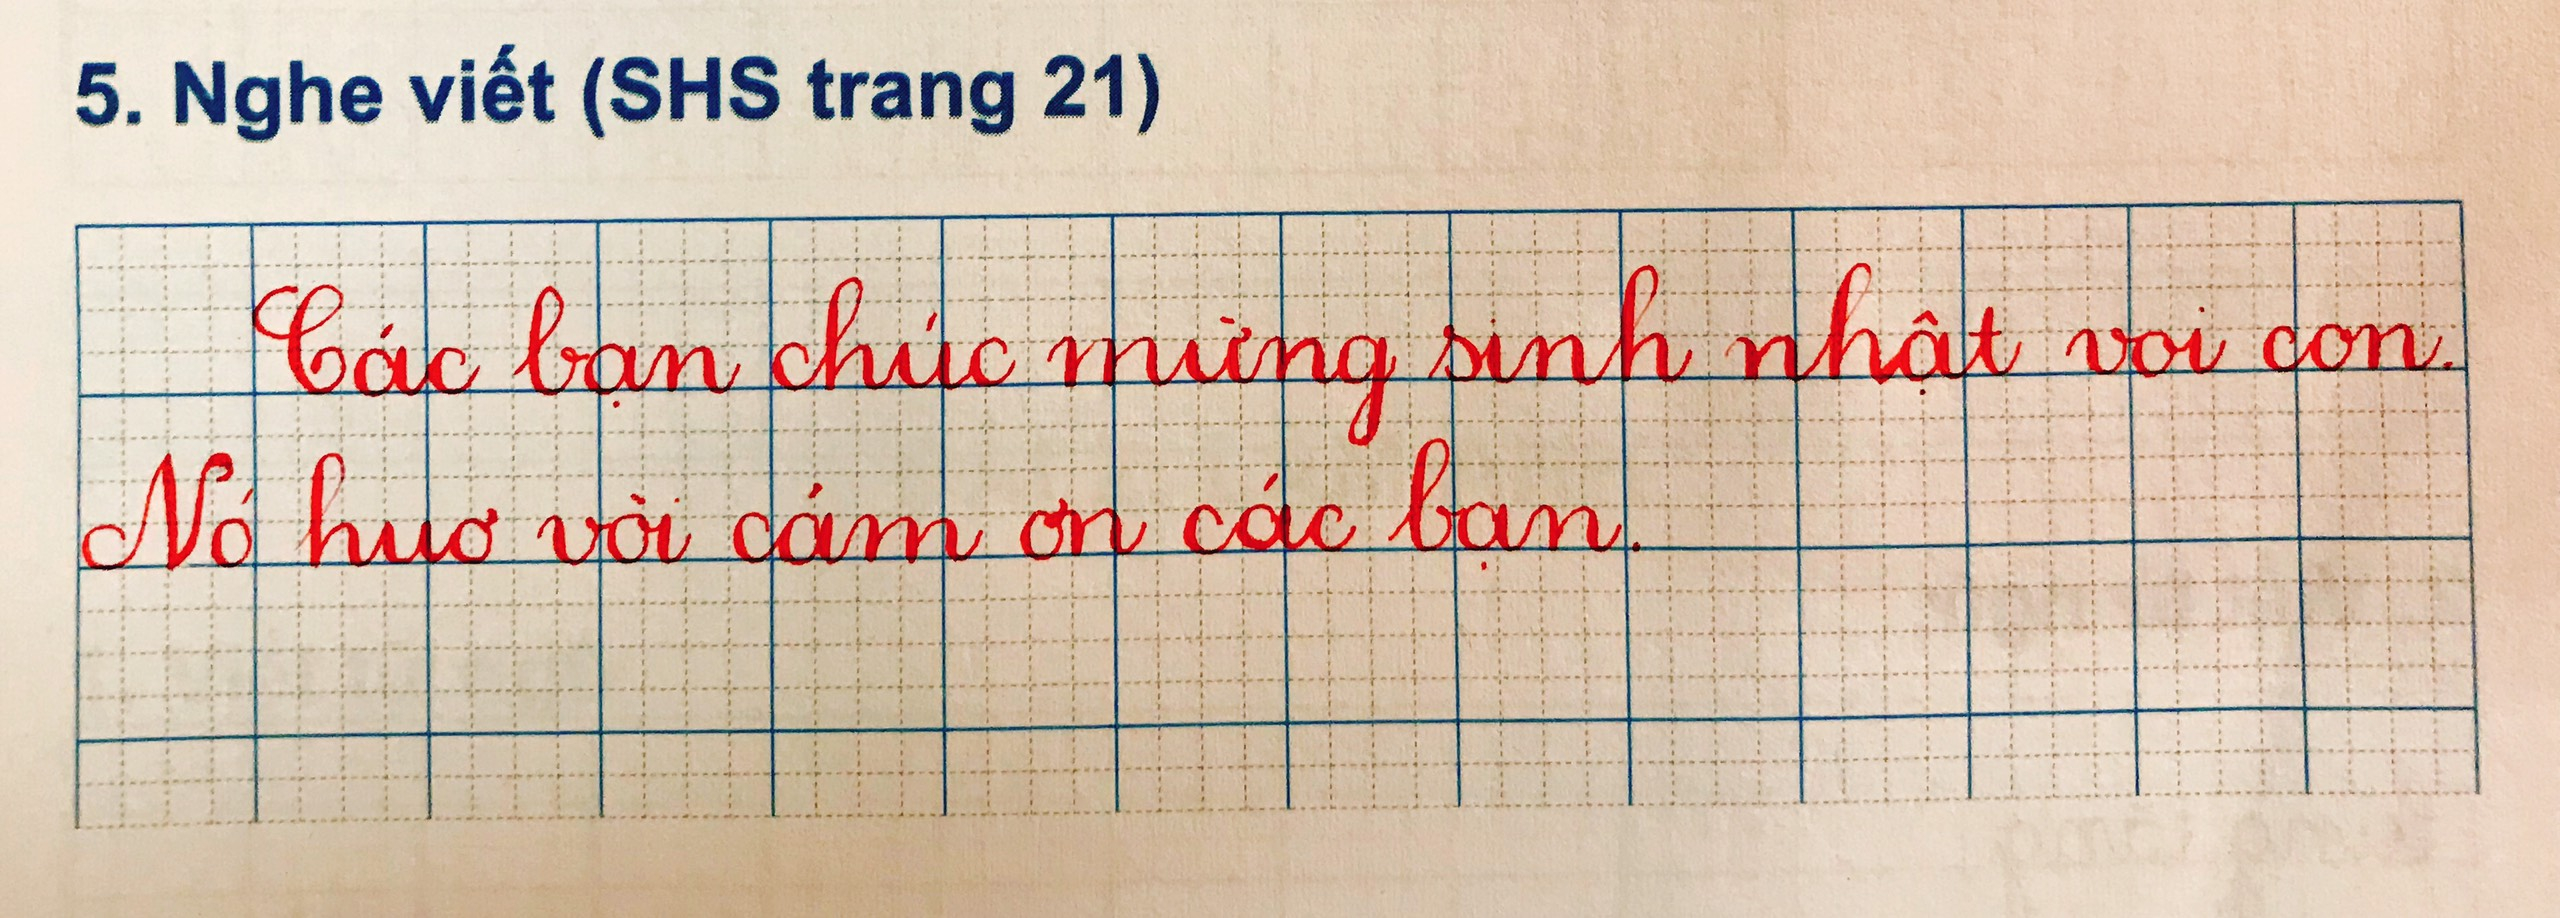 5. Nghe viết (SHS trang 21)
Các bạn chúc mừng sinh nhật voi con.
Nó huơ vòi cám ơn các bạn.